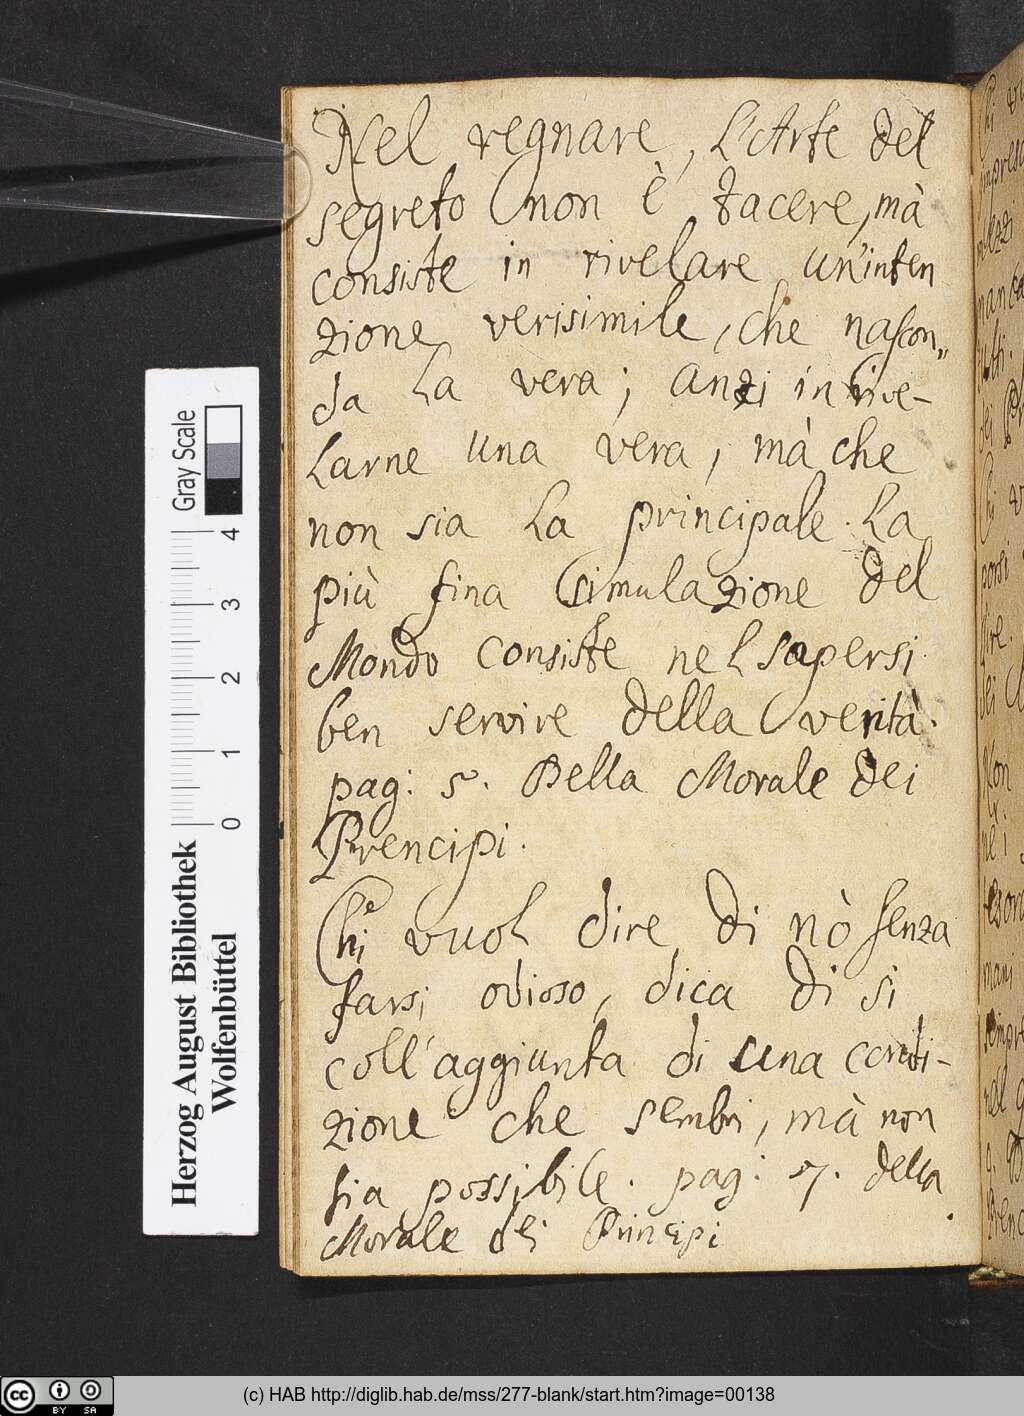 Nel regnare, l'Arte del
segreto non è tacere, mà
consiste in rivelare un'inten
zione verisimile, che nascon„
da la vera; anzi in rive-
larne una vera, mà che
non sia la principale. La
più fina simulazione del
Mondo consiste nel sapersi
ben servire della verità.
pag: 5. Bella Morale dei
Prencipi.
Chi vuol dire di nò senza
farsi odioso, dica di si
coll'aggiunta di una condi-
zione che sembri, mà non
sia possibile. pag: 7. della
Morale dei Principi
Herzog August Bibliothek
Wolfenbüttel
0 1 2 3 4
Gray Scale
cc BY SA
(c) HAB http://diglib.hab.de/mss/277-blank/start.htm?image=00138